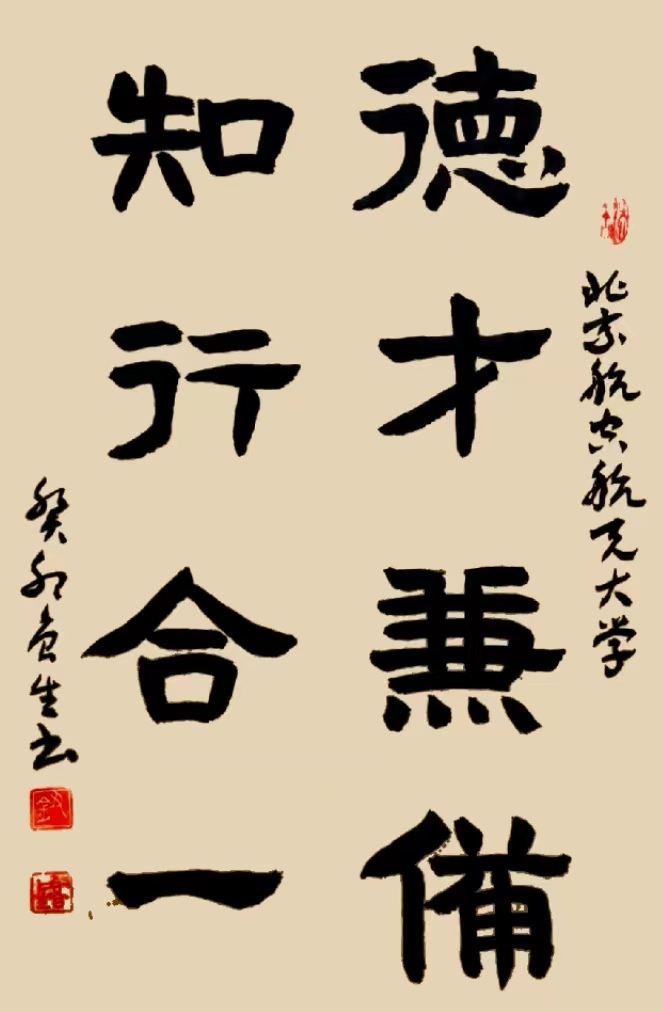 北京航空航天大学
德才兼備
知行合一
癸卯生书